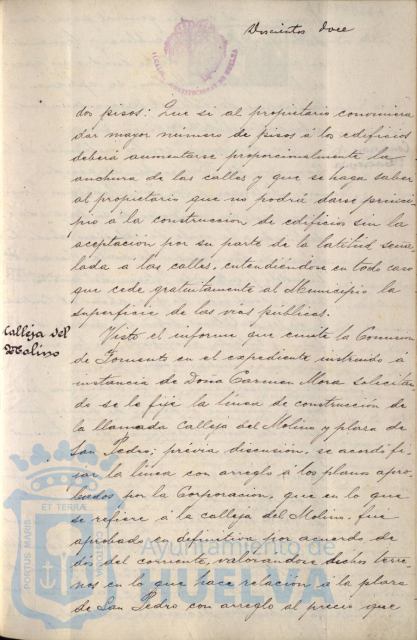 Doscientos doce
ALCALDIA CONSTITUCIONAL DE HUELVA
dos pisos: Que si al propietario conviniera
dar mayor número de pisos á los edificios
deberá aumentarse proporcionalmente la
anchura de las calles y que se haga saber
al propietario que no podrá darse princi-
pio á la construccion de edificios sin la
aceptación por su parte de la latitud seña-
lada á las calles, entendiéndose en todo caso
que cede gratuitamente al Municipio la
superficie de las vias públicas.
Calleja del
Molino
Visto el informe que emite la Comision
de Fomento en el expediente instruido á
instancia de Doña Carmen Mora solicitan-
do se le fije la línea de construcción de
la llamada Calleja del Molino y plaza de
San Pedro; prévia discusión, se acordó fi-
jar la línea con arreglo á los planos apro-
bados por la Corporacion, que en lo que
se refiere á la calleja del Molino, fué
aprobado en definitiva por acuerdo de
dos del corriente, valorandose dichos terre-
nos en lo que hace relacion á la plaza
de San Pedro con arreglo al precio que
PORTUS MARIS ET TERRAE
Ayuntamiento de
HUELVA